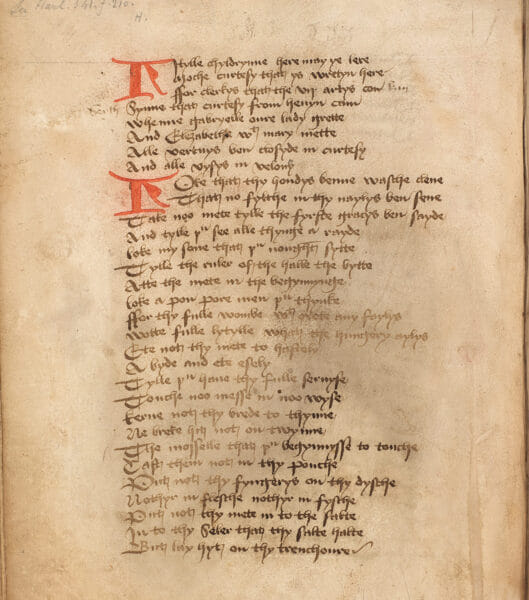 See Harl. 541. f. 210.
H.
Lytylle chyldrynne here may ye lere
Moche curtesy that ys wretyn here
ffor clerkys that the vij artys con
Synne that curtesy from hevyn cam
Whenne gabryelle oure lady grette
And Elezabethe wᵗ mary mette
Alle vertuys ben closyde in curtesy
And alle vysys in velony
Loke that thy hondys benne wasche clene
That no fylthe in thy naylys ben sene
Take noo mete tylle the fyrste gracys ben sayde
And tylle þᵘ see alle thynge a rayde
loke my sone that þᵘ nought sytte
Tylle the ruler of the halle the bytte
Atte the mete in the begynnynge
loke a pon pore men þᵘ thynke
ffor thy fulle wombe wᵗ owte any faylys
Wotte fulle lytylle whath the hungery aylys
Ete noth thy mete to hastely
A byde and ete esely
Tylle þᵘ haue thy fulle seruyse
Touche noo messe in noo wyse
kerne noth thy brede to thynne
Ne breke hit noth on twynne
The moiselle that þᵘ begynnysse to touche
Cast them noth in thy pouche
Puth noth thy fyngerys on thy dysche
Nothyr in flesche nothyr in fysche
Puth noth thy mete in to the salte
In to thy Seler that thy salte halte
Buth lay hyt on thy trenchoure